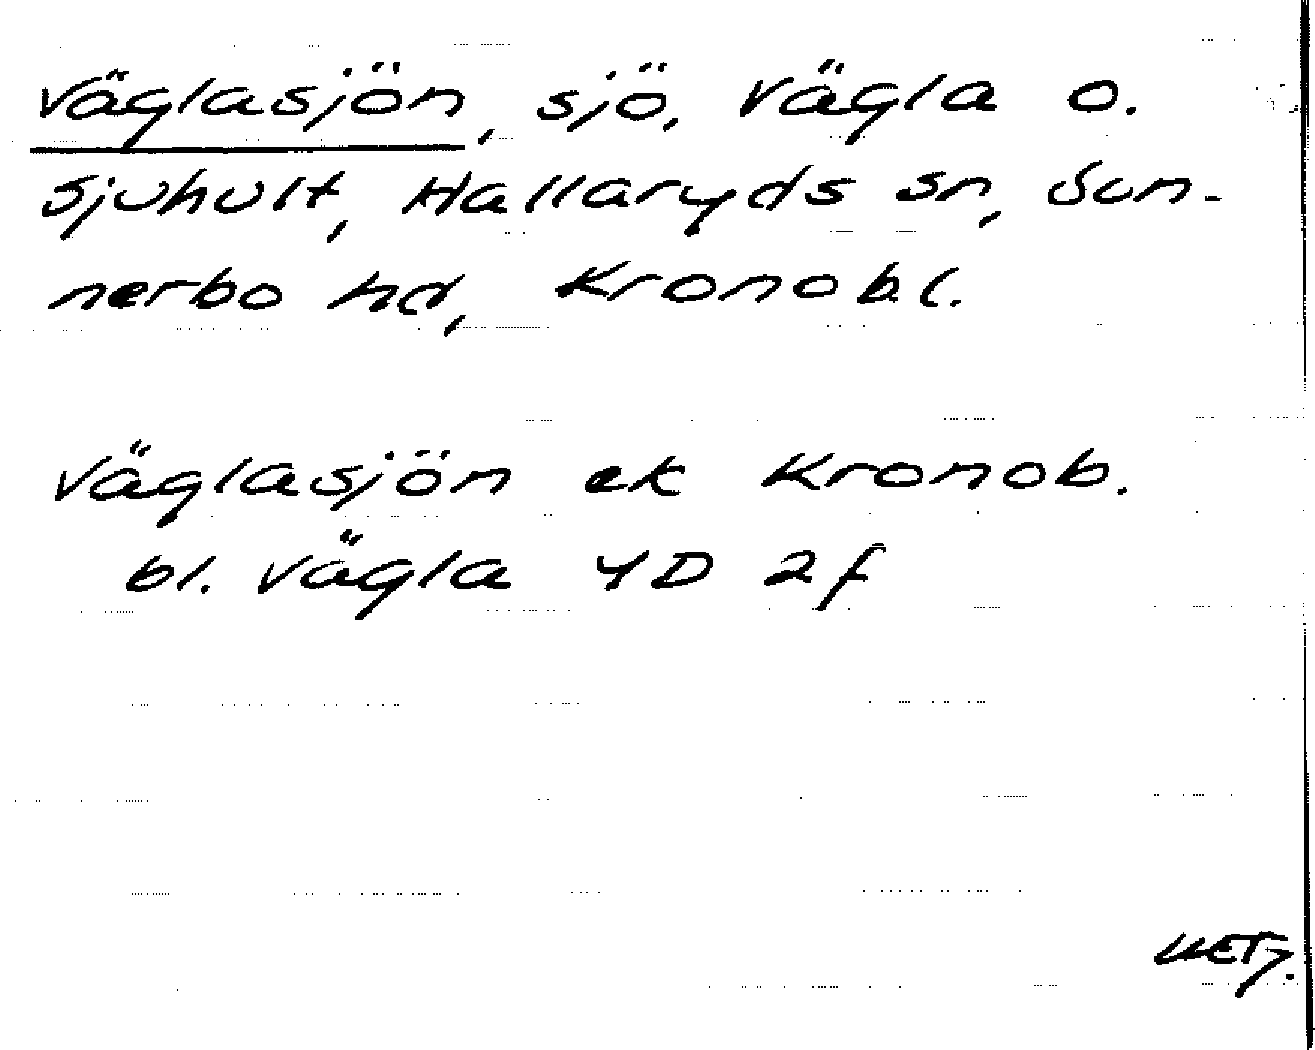 Väglasjön, sjö, Vägla o.
Sjuhult, Hallaryds sn, Sun-
nerbo hd, Kronob.l.
Väglasjön ek Kronob.
bl. Vägla 4D 2f